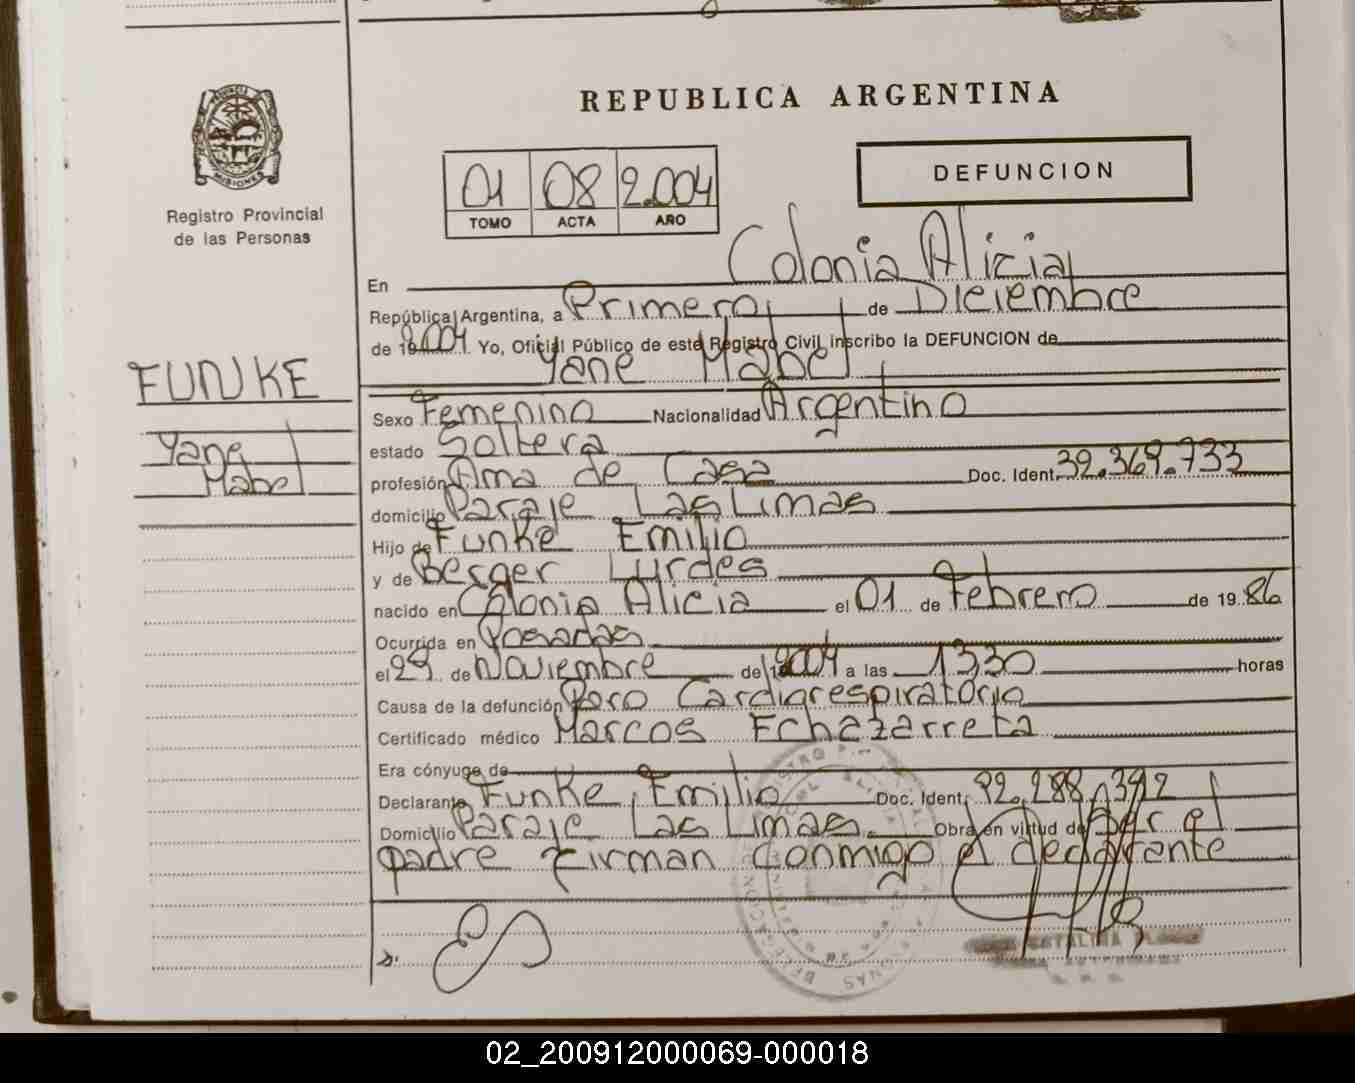 REPUBLICA ARGENTINA
PROVINCIA DE
MISIONES
Registro Provincial
de las Personas
01 08 2.004
TOMO ACTA AÑO
DEFUNCION
En Colonia Alicia
República Argentina, a Primero de Diciembre
de 19 2004. Yo, Oficial Público de este Registro Civil inscribo la DEFUNCION de
Yane Mabel
FUNKE
Yane
Mabel
Sexo Femenino Nacionalidad Argentino
estado Soltera
profesión Ama de Casa Doc. Ident. 32.369.733
domicilio Paraje Las Limas
Hijo de Funke Emilio
y de Berger Lurdes
nacido en Colonia Alicia el 01 de Febrero de 19 86
Ocurrida en Posadas
el 29 de Noviembre de 19 2004 a las 13,30 horas
Causa de la defunción Paro Cardiorespiratorio
Certificado médico Marcos Echazarreta
Era cónyuge de
Declarante Funke, Emilio Doc. Ident. 22.288.392
Domicilio Paraje Las Limas. Obra en virtud de Ser el
padre Firman conmigo el declarante
02_200912000069-000018